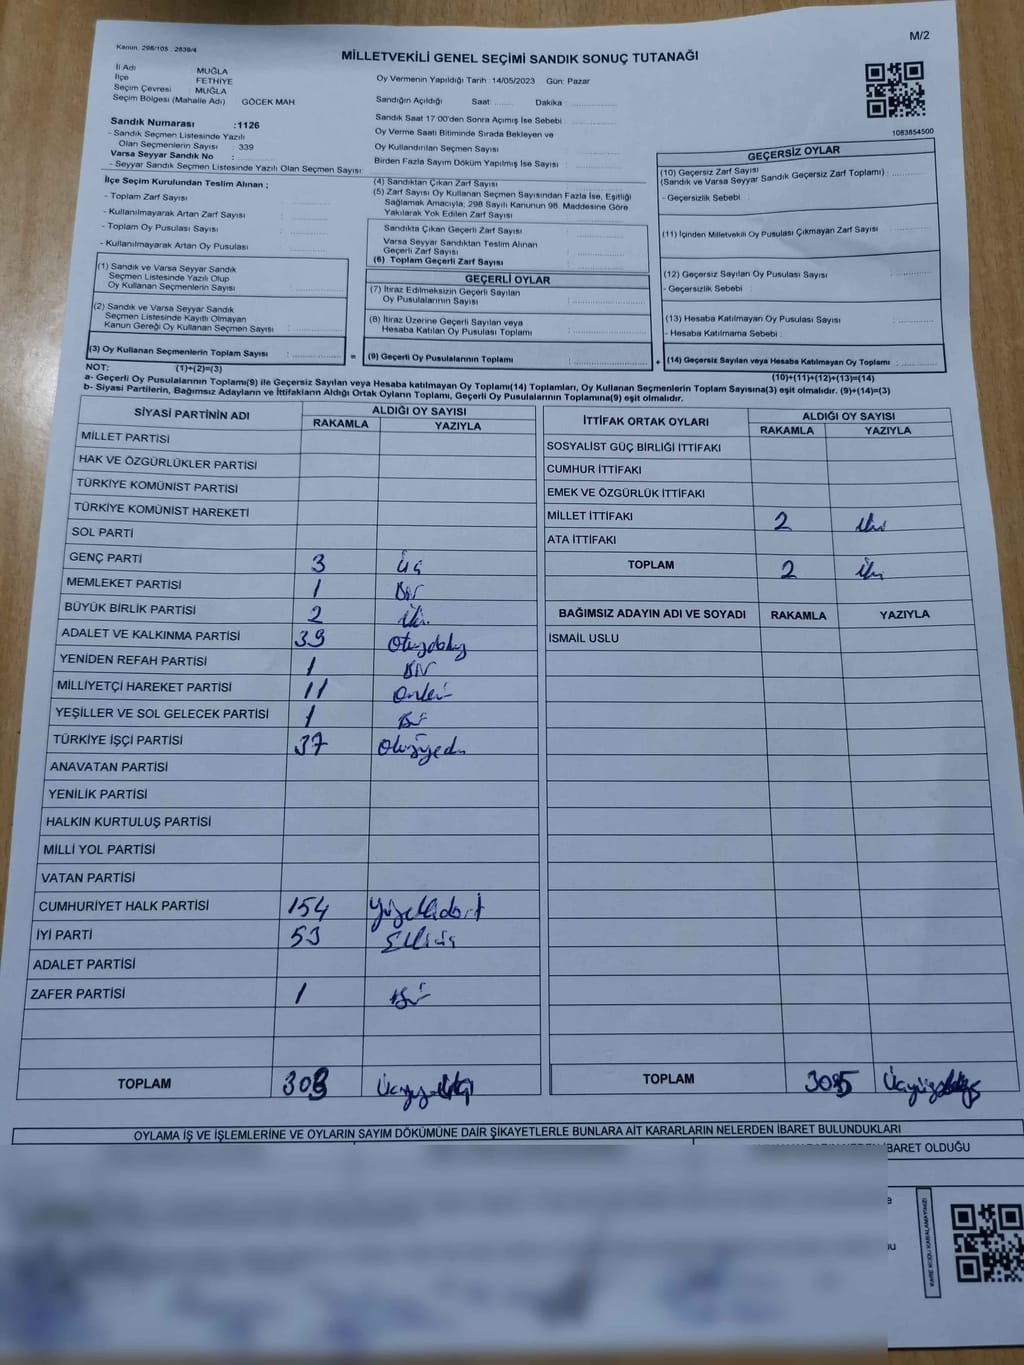 M/2
Kanun: 298/105 . 2839/4
MİLLETVEKİLİ GENEL SEÇİMİ SANDIK SONUÇ TUTANAĞI
İl Adı MUĞLA
İlçe FETHİYE
Seçim Çevresi MUĞLA
Seçim Bölgesi (Mahalle Adı) GÖCEK MAH
Sandık Numarası :1126
- Sandık Seçmen Listesinde Yazılı
Olan Seçmenlerin Sayısı : 339
Varsa Seyyar Sandık No :
- Seyyar Sandık Seçmen Listesinde Yazılı Olan Seçmen Sayısı:
Oy Vermenin Yapıldığı Tarih :14/05/2023 Gün: Pazar
Sandığın Açıldığı Saat: Dakika :
Sandık Saat 17:00'den Sonra Açımış İse Sebebi :
Oy Verme Saati Bitiminde Sırada Bekleyen ve
Oy Kullandırılan Seçmen Sayısı :
Birden Fazla Sayım Döküm Yapılmış İse Sayısı :
1083854500
İlçe Seçim Kurulundan Teslim Alınan ;
- Toplam Zarf Sayısı :
- Kullanılmayarak Artan Zarf Sayısı :
- Toplam Oy Pusulası Sayısı :
- Kullanılmayarak Artan Oy Pusulası :
(1) Sandık ve Varsa Seyyar Sandık
Seçmen Listesinde Yazılı Olup
Oy Kullanan Seçmenlerin Sayısı :
(2) Sandık ve Varsa Seyyar Sandık
Seçmen Listesinde Kayıtlı Olmayan
Kanun Gereği Oy Kullanan Seçmen Sayısı :
(3) Oy Kullanan Seçmenlerin Toplam Sayısı :
(1)+(2)=(3)
(4) Sandıktan Çıkan Zarf Sayısı :
(5) Zarf Sayısı Oy Kullanan Seçmen Sayısından Fazla İse, Eşitliği
Sağlamak Amacıyla, 298 Sayılı Kanunun 98. Maddesine Göre
Yakılarak Yok Edilen Zarf Sayısı :
Sandıkta Çıkan Geçerli Zarf Sayısı :
Varsa Seyyar Sandıktan Teslim Alınan
Geçerli Zarf Sayısı :
(6) Toplam Geçerli Zarf Sayısı :
GEÇERLİ OYLAR
(7) İtiraz Edilmeksizin Geçerli Sayılan
Oy Pusulalarının Sayısı :
(8) İtiraz Üzerine Geçerli Sayılan veya
Hesaba Katılan Oy Pusulası Toplamı :
= (9) Geçerli Oy Pusulalarının Toplamı :
GEÇERSİZ OYLAR
(10) Geçersiz Zarf Sayısı
(Sandık ve Varsa Seyyar Sandık Geçersiz Zarf Toplamı) :
- Geçersizlik Sebebi :
(11) İçinden Milletvekili Oy Pusulası Çıkmayan Zarf Sayısı :
(12) Geçersiz Sayılan Oy Pusulası Sayısı :
- Geçersizlik Sebebi :
(13) Hesaba Katılmayan Oy Pusulası Sayısı :
- Hesaba Katılmama Sebebi :
+ (14) Geçersiz Sayılan veya Hesaba Katılmayan Oy Toplamı :
(10)+(11)+(12)+(13)=(14)
NOT:
a- Geçerli Oy Pusulalarının Toplamı(9) ile Geçersiz Sayılan veya Hesaba katılmayan Oy Toplamı(14) Toplamları, Oy Kullanan Seçmenlerin Toplam Sayısına(3) eşit olmalıdır. (9)+(14)=(3)
b- Siyasi Partilerin, Bağımsız Adayların ve İttifakların Aldığı Ortak Oyların Toplamı, Geçerli Oy Pusulalarının Toplamına(9) eşit olmalıdır.
SİYASİ PARTİNİN ADI ALDIĞI OY SAYISI
RAKAMLA YAZIYLA
MİLLET PARTİSİ
HAK VE ÖZGÜRLÜKLER PARTİSİ
TÜRKİYE KOMÜNİST PARTİSİ
TÜRKİYE KOMÜNİST HAREKETİ
SOL PARTİ
GENÇ PARTİ 3 Üç
MEMLEKET PARTİSİ 1 Bir
BÜYÜK BİRLİK PARTİSİ 2 İki
ADALET VE KALKINMA PARTİSİ 39 Otuzdokuz
YENİDEN REFAH PARTİSİ 1 Bir
MİLLİYETÇİ HAREKET PARTİSİ 11 Onbir
YEŞİLLER VE SOL GELECEK PARTİSİ 1 Bir
TÜRKİYE İŞÇİ PARTİSİ 37 Otuzyedi
ANAVATAN PARTİSİ
YENİLİK PARTİSİ
HALKIN KURTULUŞ PARTİSİ
MİLLİ YOL PARTİSİ
VATAN PARTİSİ
CUMHURİYET HALK PARTİSİ 154 Yüzellidört
İYİ PARTİ 53 Elliüç
ADALET PARTİSİ
ZAFER PARTİSİ 1 Bir
TOPLAM 303
İTTİFAK ORTAK OYLARI ALDIĞI OY SAYISI
RAKAMLA YAZIYLA
SOSYALİST GÜÇ BİRLİĞİ İTTİFAKI
CUMHUR İTTİFAKI
EMEK VE ÖZGÜRLÜK İTTİFAKI
MİLLET İTTİFAKI 2 iki
ATA İTTİFAKI
TOPLAM 2 iki
BAĞIMSIZ ADAYIN ADI VE SOYADI RAKAMLA YAZIYLA
İSMAİL USLU
TOPLAM 305
OYLAMA İŞ VE İŞLEMLERİNE VE OYLARIN SAYIM DÖKÜMÜNE DAİR ŞİKAYETLERLE BUNLARA AİT KARARLARIN NELERDEN İBARET BULUNDUKLARI
İBARET OLDUĞU
KARE KODU KARALAMAYINIZ!